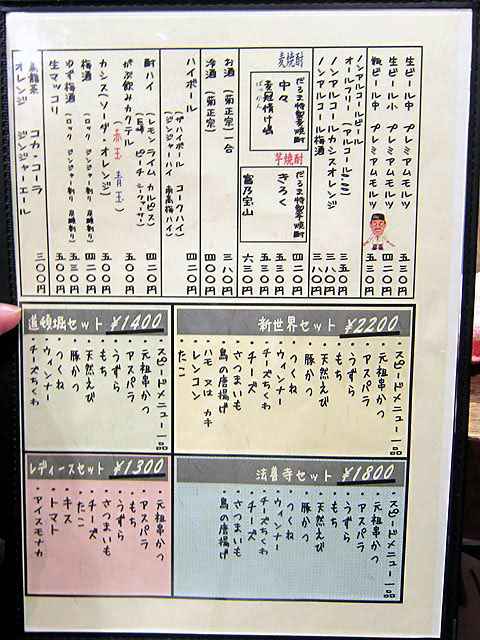 生ビール中 プレミアムモルツ 五三〇円
生ビール小 プレミアムモルツ 四二〇円
瓶ビール中 プレミアムモルツ 五三〇円
ノンアルコールビール
オールフリー（アルコール〇.〇〇） 三五〇円
ノンアルコールカシスオレンジ 三八〇円
ノンアルコール梅酒 三八〇円
麦焼酎
だるま特製麦焼酎 四二〇円
中々 五三〇円
麦冠情け嶋
芋焼酎
だるま特製芋焼酎
きろく
富乃宝山 六三〇円
お酒（菊正宗）一合 三八〇円
冷酒（菊正宗） 四〇〇円
ハイボール 四二〇円
（ザ・ハイボール コークハイ）
（ジンジャーハイ 南高梅ハイ）
酎ハイ（レモン ライム カルピス） 四二〇円
（巨峰 ピーチ シークァーサー）
がぶ飲みカクテル 五〇〇円
（赤玉 青玉）
カシス（ソーダ・オレンジ） 五〇〇円
梅酒（ロック ソーダ割り 水割り） 四二〇円
ゆず梅酒（ロック ソーダ割り 水割り） 五〇〇円
生マッコリ 五三〇円
烏龍茶 コカ・コーラ
オレンジ ジンジャーエール 三〇〇円
新世界セット ¥2200
・スピードメニュー一品
・元祖串かつ
・アスパラ
・うずら
・もち
・天然えび
・豚かつ
・つくね
・ウィンナー
・チーズちくわ
・チーズ
・さつまいも
・鳥の唐揚げ
・ハモ 又は カキ
・レンコン
・たこ
道頓堀セット ¥1400
・スピードメニュー一品
・元祖串かつ
・アスパラ
・うずら
・もち
・天然えび
・豚かつ
・つくね
・ウィンナー
・チーズちくわ
法善寺セット ¥1800
・スピードメニュー一品
・元祖串かつ
・アスパラ
・うずら
・もち
・天然えび
・豚かつ
・つくね
・ウィンナー
・チーズちくわ
・チーズ
・さつまいも
・鳥の唐揚げ
レディースセット ¥1300
・元祖串かつ
・アスパラ
・もち
・うずら
・さつまいも
・チーズ
・たこ
・キス
・トマト
・アイスモナカ